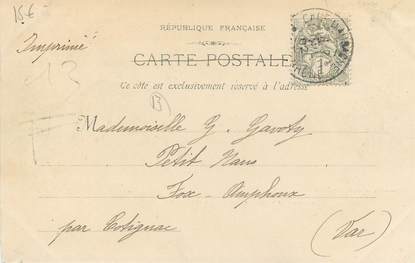 15 €
RÉPUBLIQUE FRANÇAISE
Imprimé
CARTE POSTALE
Ce côté est exclusivement réservé à l'adresse
13
B
Mademoiselle G. Gavoty
Petit Nans
Fox-Amphoux
par Cotignac
(Var)